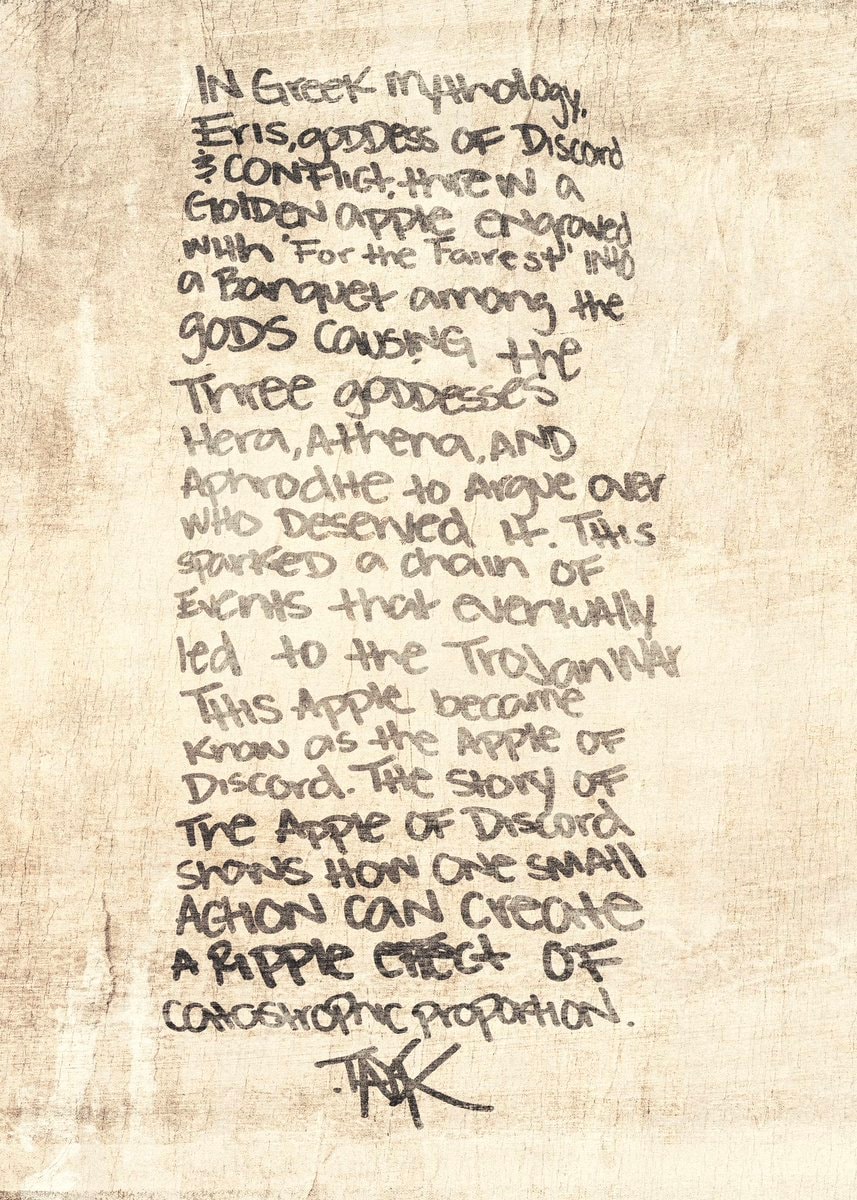 In Greek mythology,
Eris, goddess of Discord
& Conflict, threw a
Golden apple engraved
with "For the Fairest" into
a Banquet among the
gods causing the
Three goddesses
Hera, Athena, AND
Aphrodite to Argue over
who Deserved it. This
sparked a chain of
Events that eventually
led to the Trojan War
This Apple became
Know as the Apple of
Discord. The story of
The Apple of Discord
shows How One small
Action can create
A Ripple effect of
catastrophic proportion.